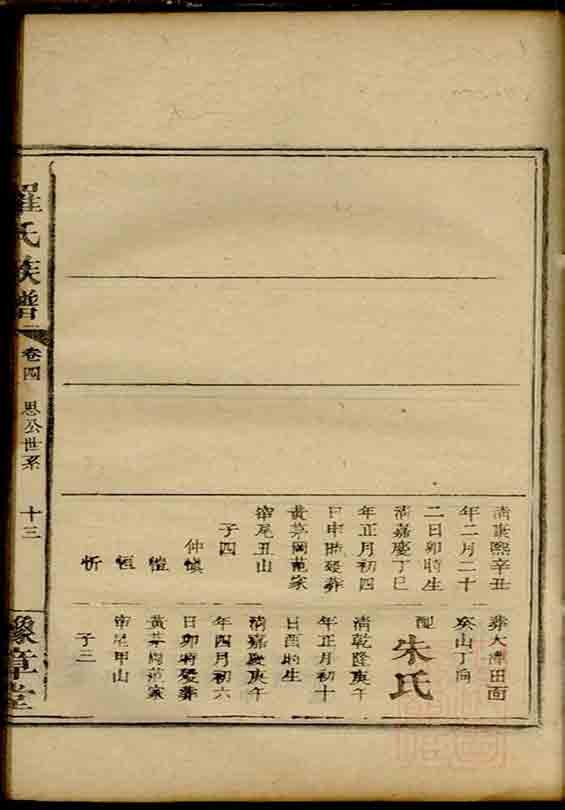 清康熙辛丑
年二月二十
二日卯時生
清嘉慶丁巳
年正月初四
日申時歿葬
黃茅岡范家
窋尾丑山
子四
仲慎
愷
恒
忻
葬大潭田面
癸山丁向
配
朱氏
清乾隆庚午
年正月初十
日酉時生
清嘉慶庚午
年四月初六
日卯時歿葬
黃茅岡范家
窋尾甲山
子三
羅氏族譜
卷四
思公世系
十三
豫章堂